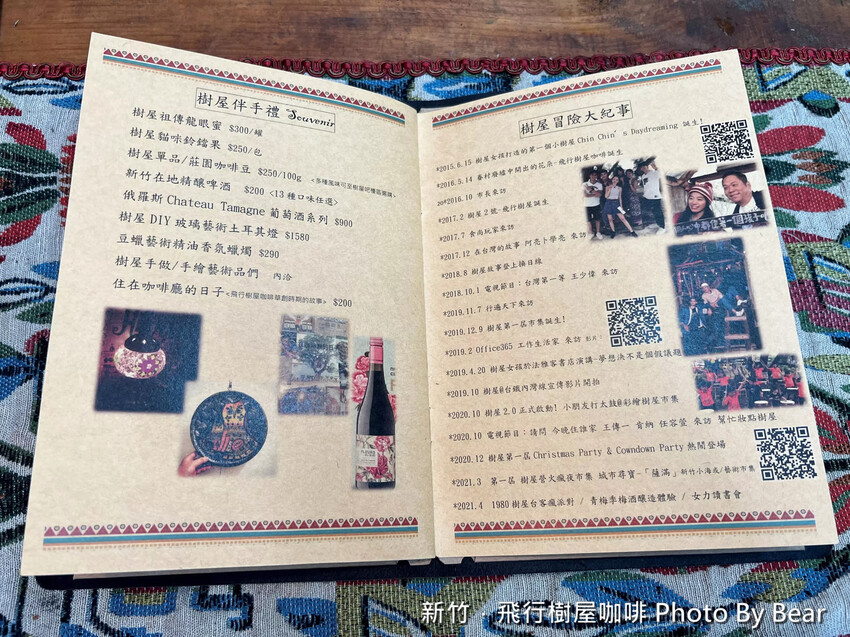 樹屋伴手禮 Souvenir
樹屋祖傳龍眼蜜 $300/罐
樹屋貓咪鈴鐺果 $250/包
樹屋單品/莊園咖啡豆 $250/100g <多種風味可至樹屋吧檯區選購>
新竹在地精釀啤酒 $200 <13種口味任選>
俄羅斯Chateau Tamagne葡萄酒系列 $900
樹屋DIY玻璃藝術土耳其燈 $1580
豆蠟藝術精油香氛蠟燭 $290
樹屋手做/手繪藝術品們 內洽
住在咖啡廳的日子<飛行樹屋咖啡草創時期的故事> $200
樹屋冒險大紀事
*2015.6.15 樹屋女孩打造的第一個小樹屋 Chin Chin's Daydreaming 誕生!
*2016.5.14 眷村廢墟中開出的花朵-飛行樹屋咖啡誕生
*2016.10 市長來訪
*2017.2 樹屋2號-飛行樹屋誕生
*2017.7 食尚玩家來訪
*2017.12 在台灣的故事 阿亮卜學亮 來訪
*2018.8 樹屋故事登上換日線
*2018.10.1 電視節目:台灣第一等 王少偉 來訪
*2019.11.7 行遍天下來訪
*2019.12.9 樹屋第一屆市集誕生!
*2019.2 Office365 工作生活家 來訪 影片:
*2019.4.20 樹屋女孩於法雅客書店演講-夢想決不是個假議題
*2019.10 樹屋@台鐵內灣線宣傳影片開拍
*2020.10 樹屋2.0正式啟動! 小朋友打太鼓@彩繪樹屋市集
*2020.10 電視節目:請問 今晚住誰家 王傳一 肯納 任容萱 來訪 幫忙妝點樹屋
*2020.12 樹屋第一屆Christmas Party & Cowndown Party熱鬧登場
*2021.3 第一屆 樹屋營火瘋夜市集 城市尋寶-「薩滿」新竹小海或/藝術市集
*2021.4 1980樹屋台客瘋派對 / 青梅季梅酒釀造體驗 / 女力讀書會
新竹．飛行樹屋咖啡 Photo By Bear